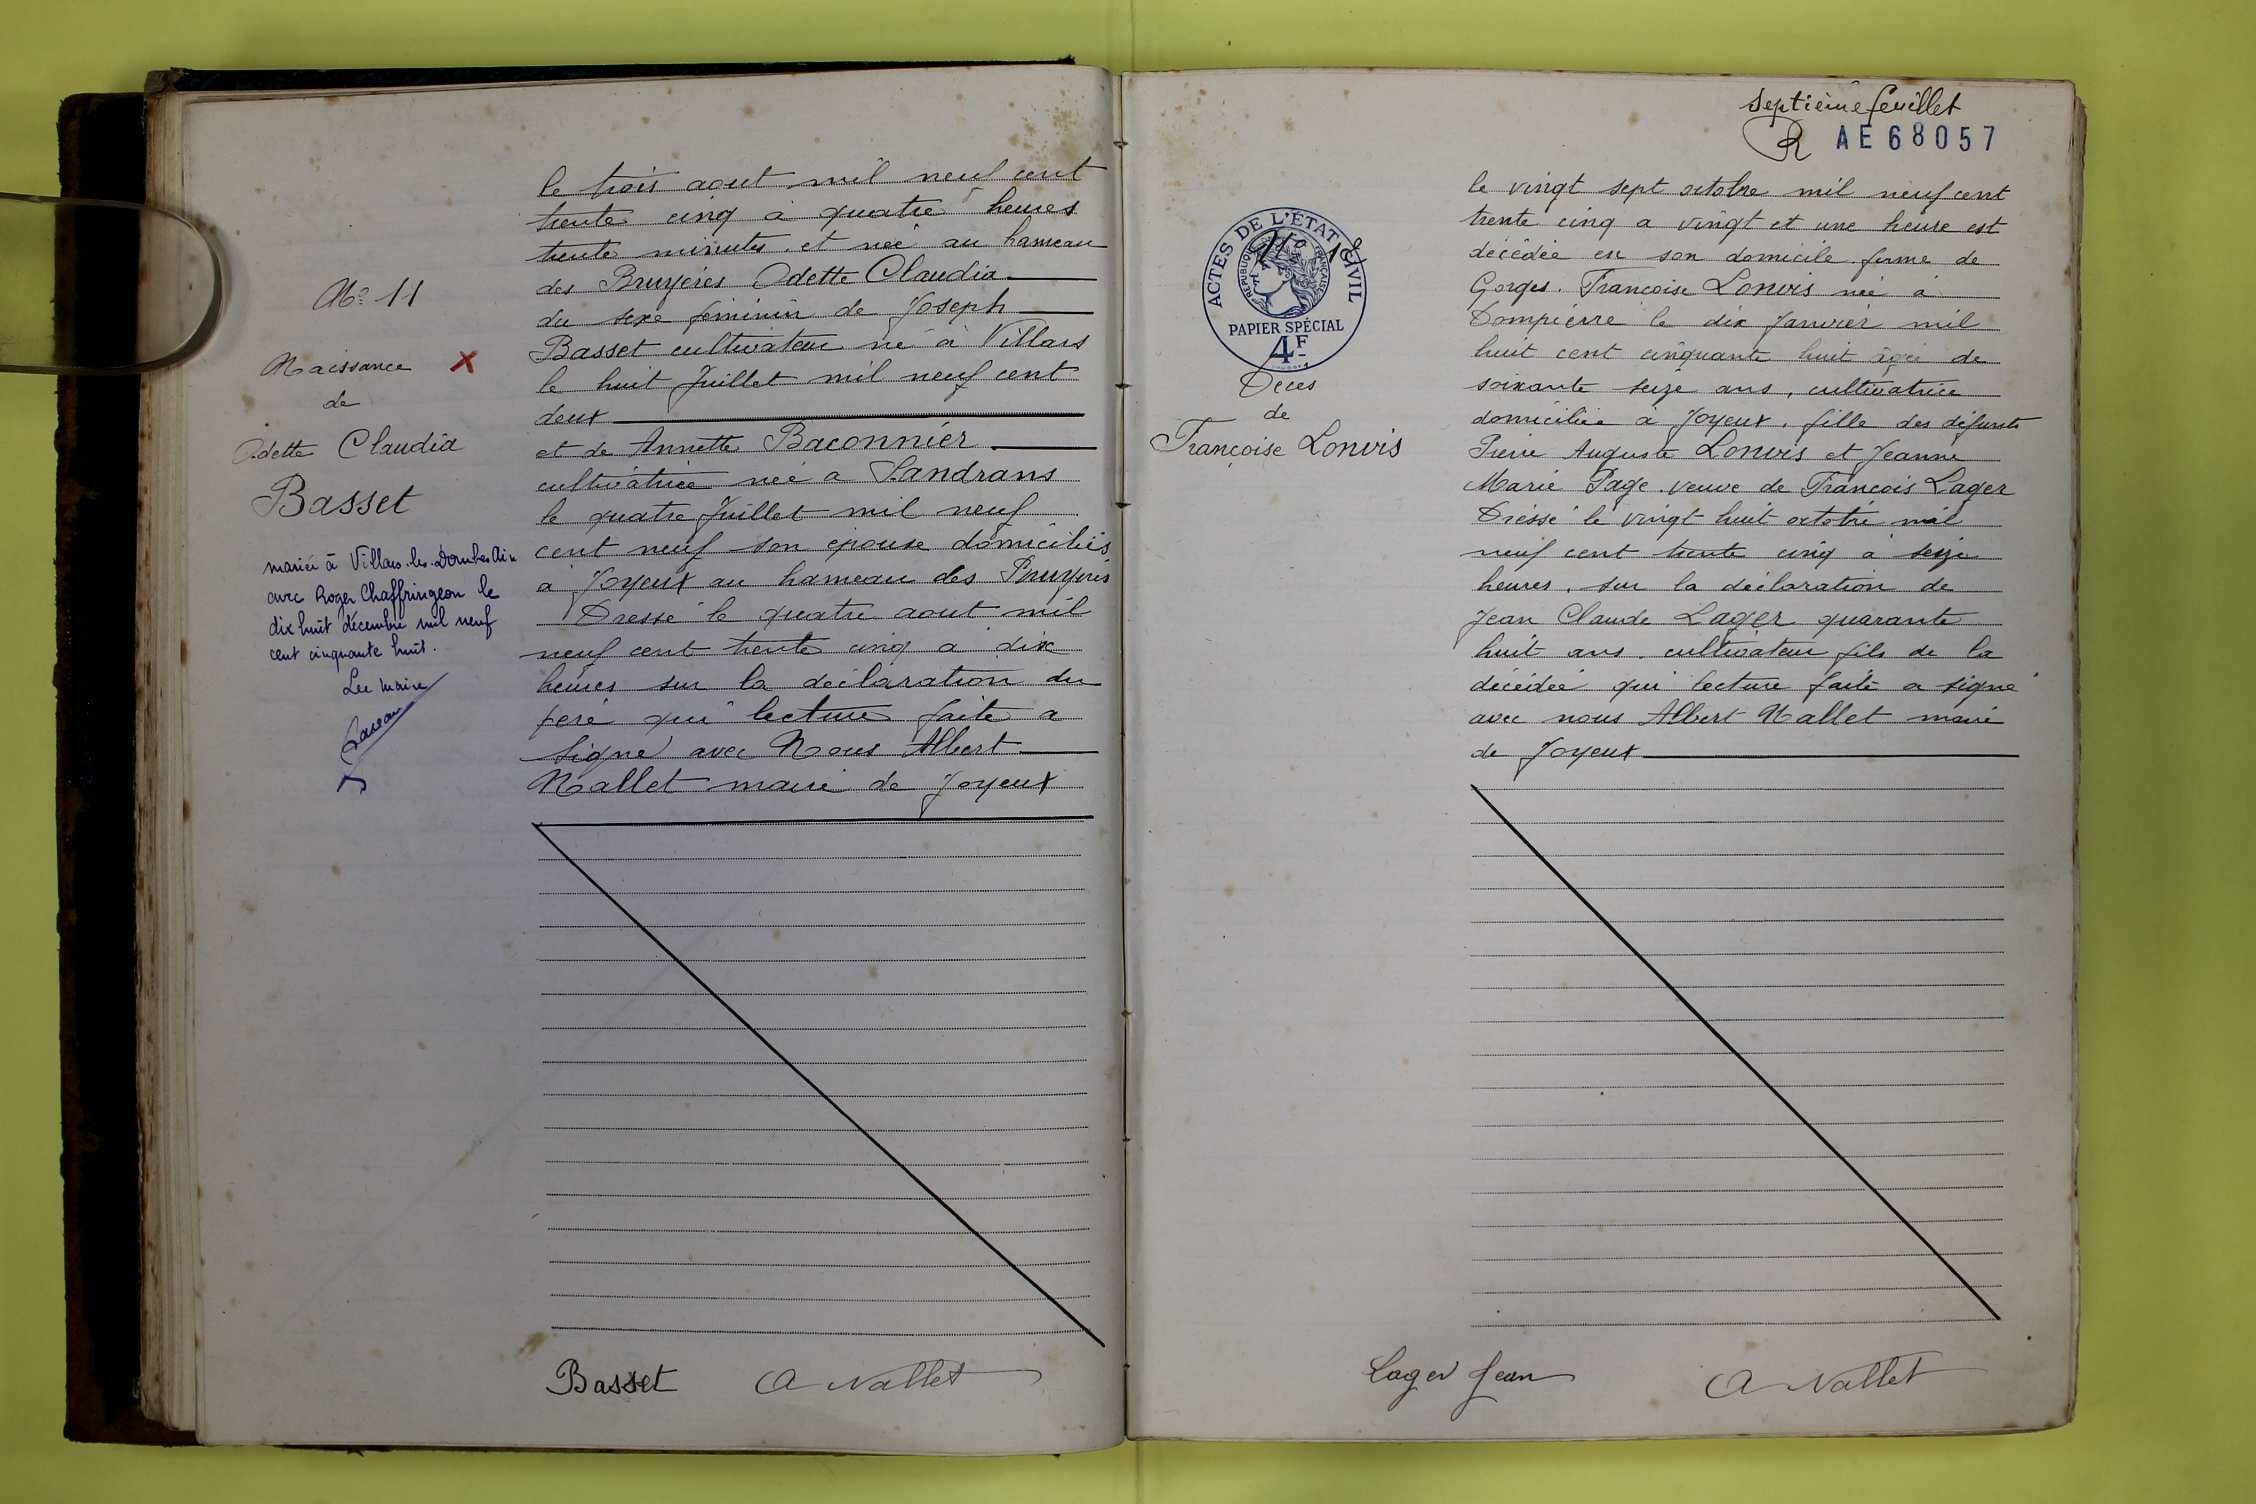 N° 11
Naissance X
de
Odette Claudia
Basset
mariée à Villars-les-Dombes Ain
avec Roger Chaffringeon le
dix huit décembre mil neuf
cent cinquante huit.
Le maire
le trois aout mil neuf cent
trente cinq à quatre heures
trente minutes. et née au hameau
des Bruyères Odette Claudia
du sexe féminin de Joseph
Basset cultivateur né à Villars
le huit Juillet mil neuf cent
deux
et de Annette Baconnier
cultivatrice née a Sandrans
le quatre Juillet mil neuf
cent neuf son épouse domiciliés
à Joyeux au hameau des Bruyères
Dressé le quatre aout mil
neuf cent trente cinq a dix
heures sur la déclaration du
père qui lecture faite a
signé avec Nous Albert
Nallet maire de Joyeux
Basset A Nallet
septième feuillet
R AE68057
ACTES DE L'ÉTAT CIVIL
RÉPUBLIQUE FRANÇAISE
PAPIER SPÉCIAL
4F
Décès
de
Françoise Lonvis
le vingt sept octobre mil neuf cent
trente cinq a vingt et une heure est
décédée en son domicile ferme de
Gorges. Françoise Lonvis née à
Dompierre le dix Janvier mil
huit cent cinquante huit âgée de
soixante seize ans, cultivatrice
domiciliée à Joyeux, fille des défunts
Pierre Auguste Lonvis et Jeanne
Marie Page. veuve de François Lager
Dressé le vingt huit octobre mil
neuf cent trente cinq a seize
heures. sur la déclaration de
Jean Claude Lager quarante
huit ans. cultivateur fils de la
décédée qui lecture faite a signé
avec nous Albert Nallet maire
de Joyeux
Lager Jean A Nallet